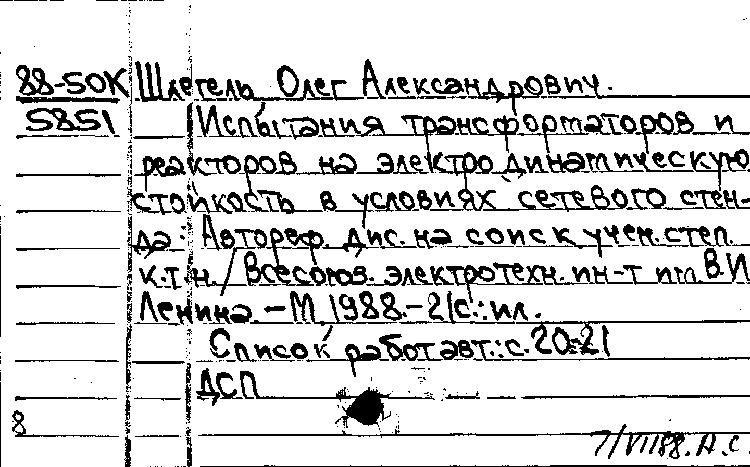 88-50К Шлегель Олег Александрович.
5851 Испытания трансформаторов и
реакторов на электродинамическую
стойкость в условиях сетевого стен-
да: Автореф. дис. на соиск учен. степ.
к.т.н. / Всесоюз. электротехн. ин-т им. В.И
Ленина. - М, 1988. - 21с.: ил.
Список работ авт.: с. 20-21
ДСП
8
7/VII88. Н.С.